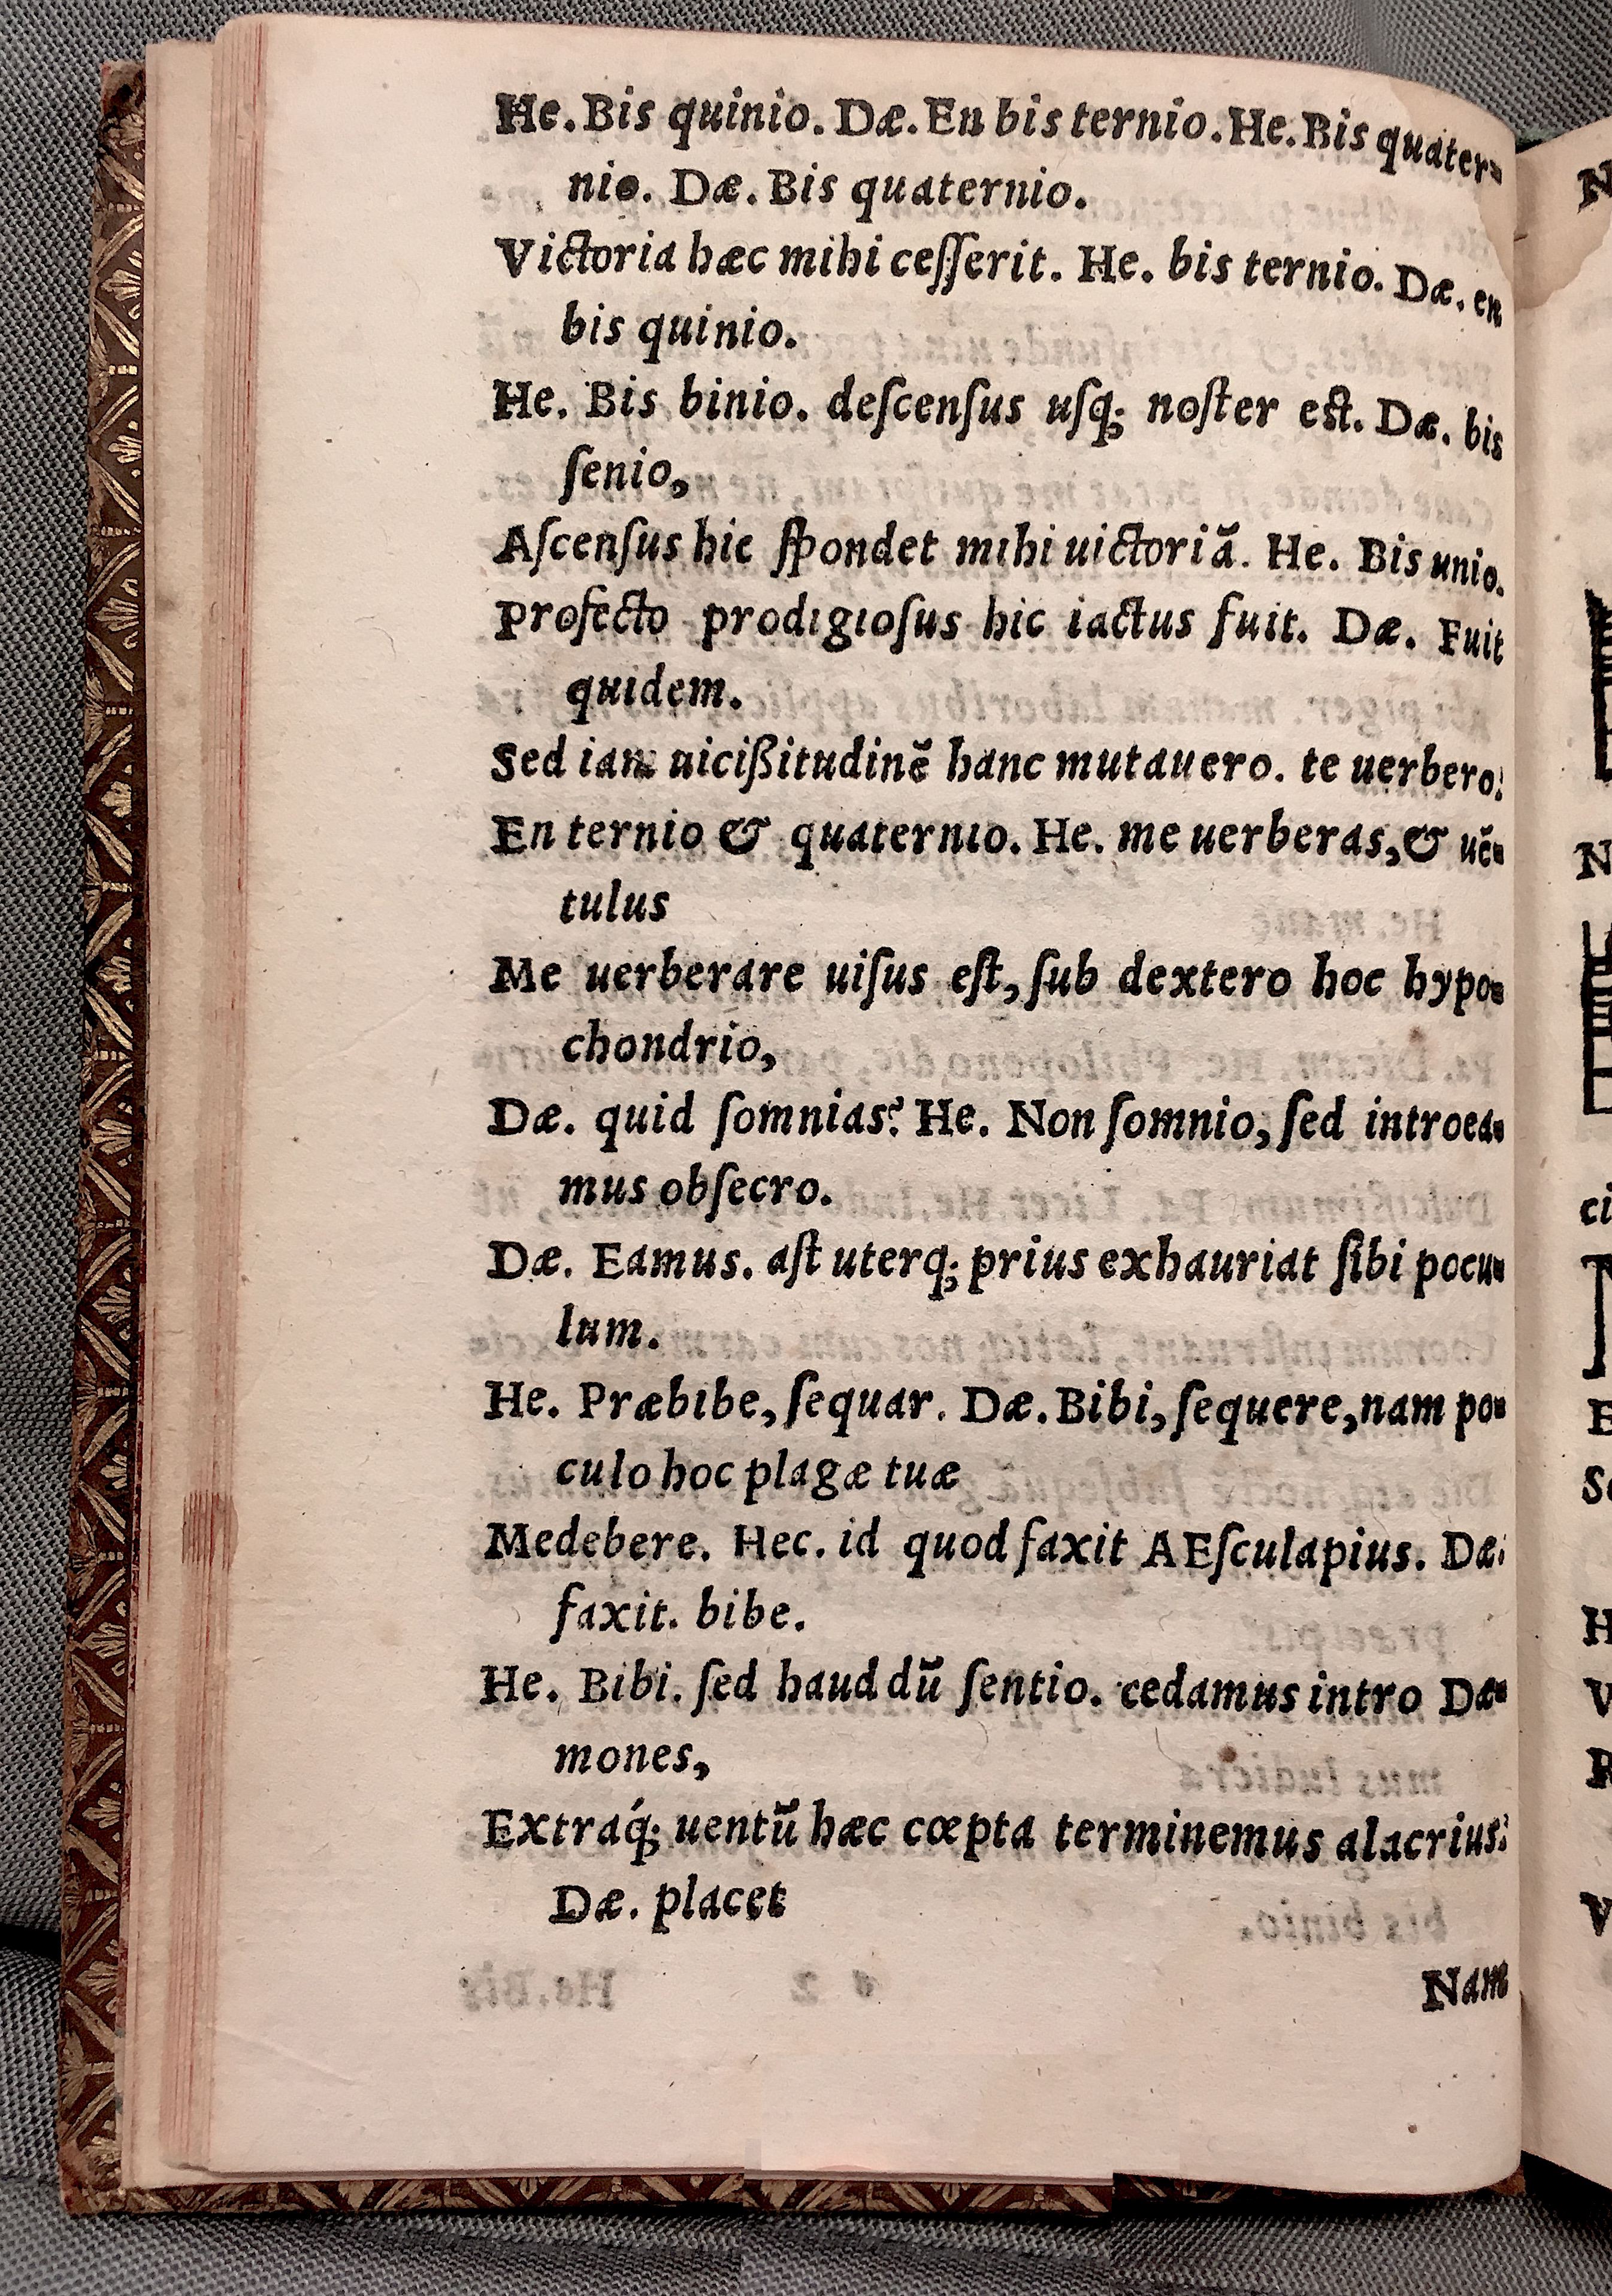 He. Bis quinio. Dæ. En bis ternio. He. Bis quater-
nio. Dæ. Bis quaternio.
Victoria hæc mihi ceſſerit. He. bis ternio. Dæ. en
bis quinio.
He. Bis binio. deſcenſus uſq; noſter eſt. Dæ. bis
ſenio,
Aſcenſus hic ſpondet mihi uictoriã. He. Bis unio.
Profecto prodigioſus hic iactus fuit. Dæ. Fuit
quidem.
Sed iam uicißitudinẽ hanc mutauero. te uerbero.
En ternio & quaternio. He. me uerberas, & uẽ-
tulus
Me uerberare uiſus eſt, ſub dextero hoc hypo-
chondrio,
Dæ. quid ſomnias? He. Non ſomnio, ſed introea-
mus obſecro.
Dæ. Eamus. aſt uterq; prius exhauriat ſibi pocu-
lum.
He. Præbibe, ſequar. Dæ. Bibi, ſequere, nam po-
culo hoc plagæ tuæ
Medebere. Hec. id quod faxit AEſculapius. Dæ.
faxit. bibe.
He. Bibi. ſed haud dũ ſentio. cedamus intro Dæ-
mones,
Extraq́; uentũ hæc cœpta terminemus alacrius.
Dæ. placet
Nam